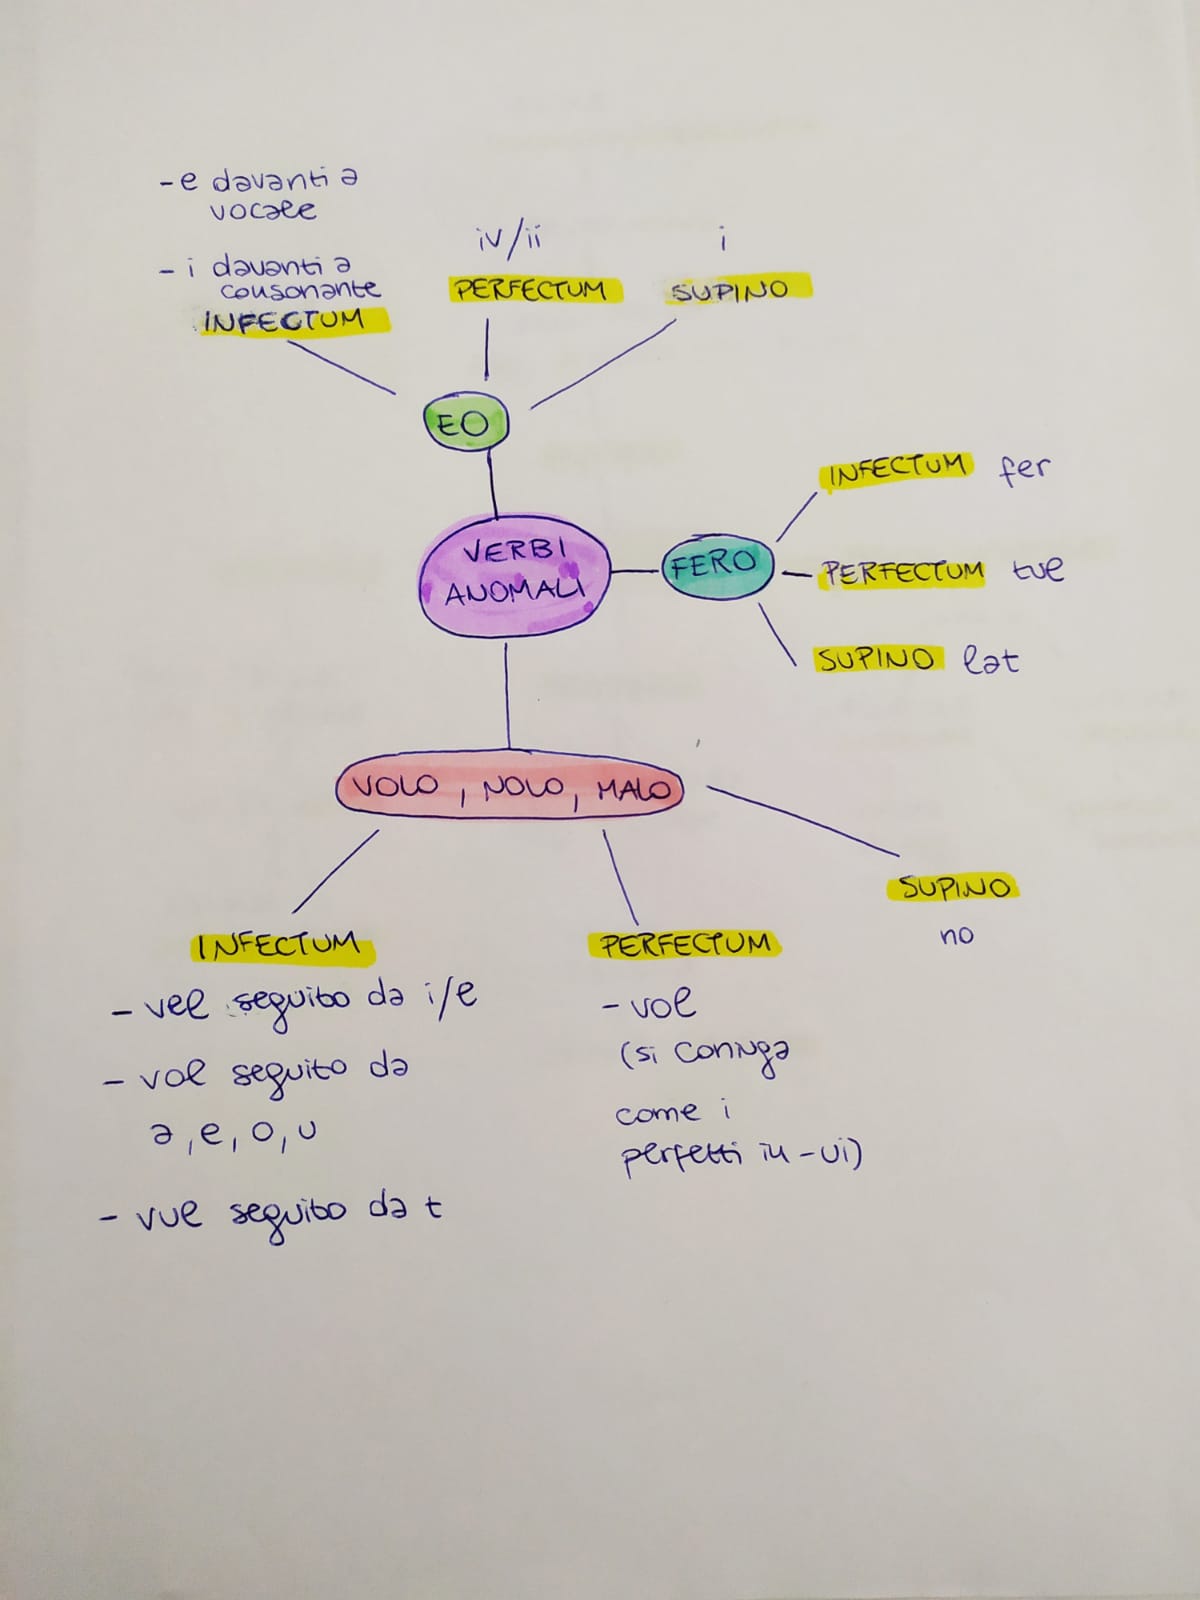 - e davanti a
vocale
- i davanti a
consonante
INFECTUM
iv/ii
PERFECTUM
i
SUPINO
EO
VERBI
ANOMALI
FERO
INFECTUM fer
PERFECTUM tul
SUPINO lat
VOLO, NOLO, MALO
INFECTUM
- vel seguito da i/e
- vol seguito da
a, e, o, u
- vul seguito da t
PERFECTUM
- vol
(si coniuga
come i
perfetti in -ui)
SUPINO
no